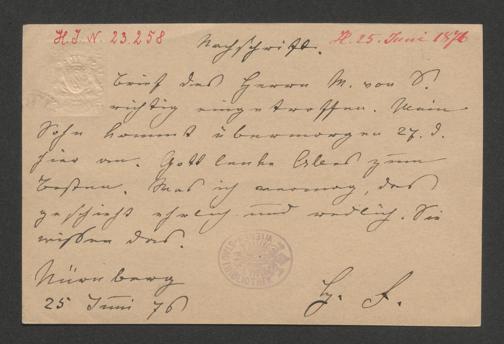 H. I. N. 23.258
Nachschrift.
N. 25. Juni 1876
Brief des Herrn M. von S.
richtig eingetroffen. Mein
Sohn kommt übermorgen 27. d.
hier an. Gott lenke Alles zum
Besten. Was ich vermag, das
geschieht ehrlich und redlich. Sie
wissen das.
Nürnberg
25 Juni 76
L. F.